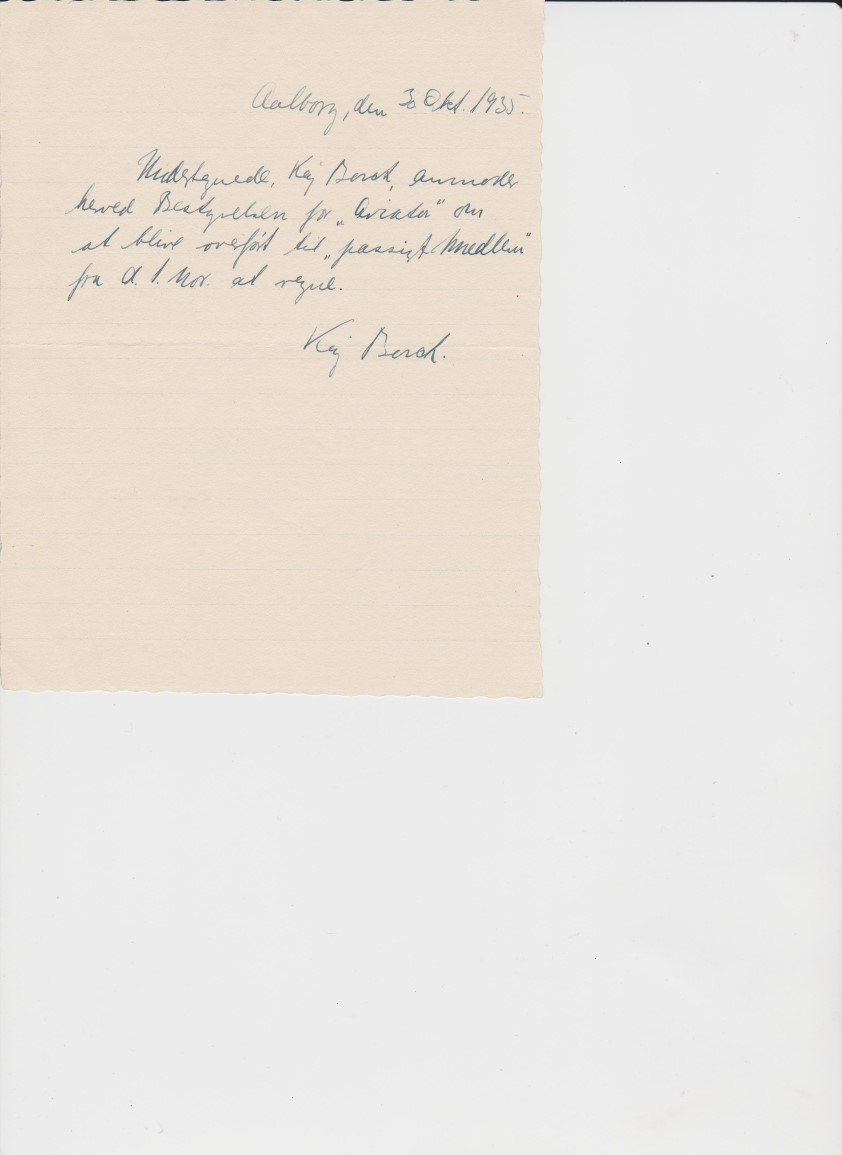 Aalborg, den 30 Okt. 1935.
Undertegnede, Kaj Borch, anmoder
herved Bestyrelsen for „Aviator" om
at blive overført til „passivt Medlem"
fra d. 1. Nov. at regne.
Kaj Borch.